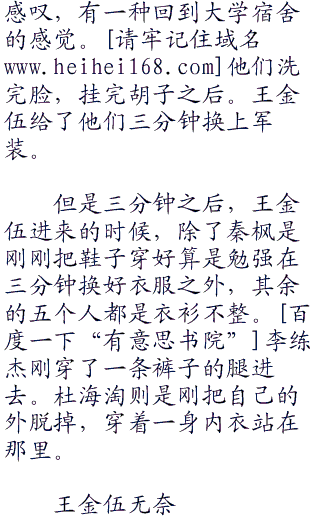 感叹，有一种回到大学宿舍
的感觉。[请牢记住域名
www.heihei168.com]他们洗
完脸，挂完胡子之后。王金
伍给了他们三分钟换上军
装。
但是三分钟之后，王金
伍进来的时候，除了秦枫是
刚刚把鞋子穿好算是勉强在
三分钟换好衣服之外，其余
的五个人都是衣衫不整。[百
度一下“有意思书院”]李练
杰刚穿了一条裤子的腿进
去。杜海淘则是刚把自己的
外脱掉，穿着一身内衣站在
那里。
王金伍无奈